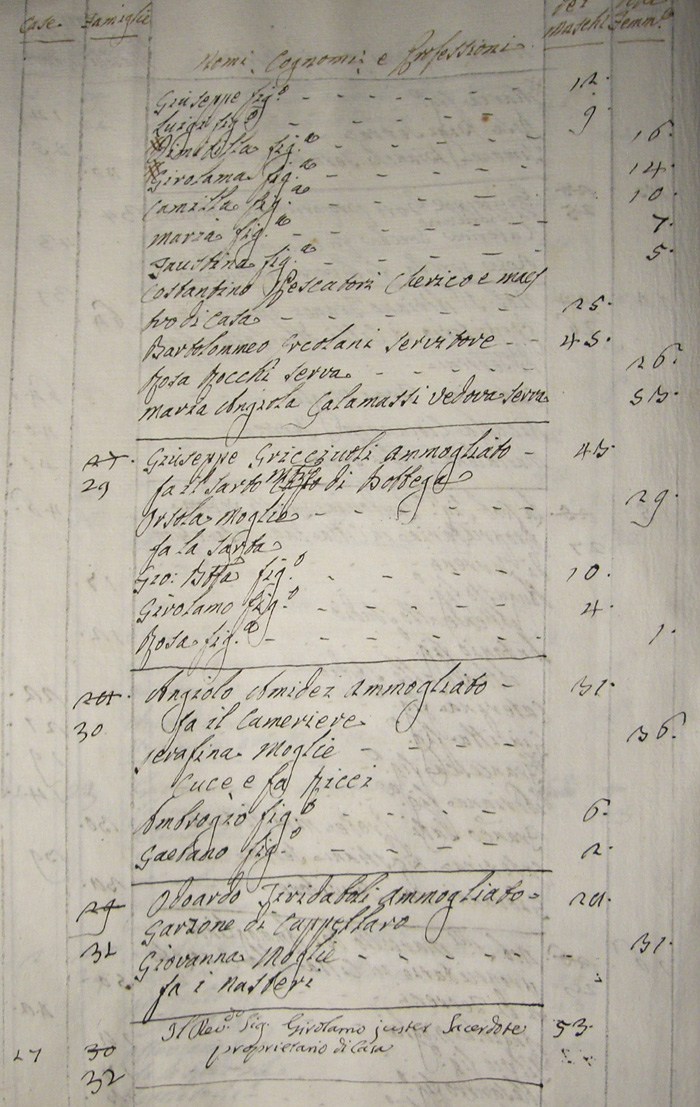 Case. Famiglie
Maschi Femm.e
Nomi, Cognomi, e Professioni
Giuseppe fig.o - - - - 12.
Luigi fig.o - - - - 9.
fig.a - - - 16.
Girolama fig.a - - - 14.
Camilla fig.a - - - 10.
Maria fig.a - - - 7.
Faustina fig.a - - - 5.
Costantino Pescatori Clerico e maes
tro di Casa - - - 25.
Bartolommeo Ercolani Servitore - - 45.
Rosa Rocchi serva - - - 26.
Maria Angiola Calamassi Vedova serva 53.
27. Giuseppe Gricciuoli ammogliato - 43.
29 fa il Sarto di Bottega
Orsola Moglie - - - 29.
fa la Sarta
Gio: Btta fig.o - - - 10.
Girolamo fig.o - - - 4.
Rosa fig.a - - - 1.
28. Angiolo Amidei ammogliato - 31.
30 fa il Cameriere
Serafina Moglie - - - 36.
Cuce e fa Ricci
Ambrogio fig.o - - - 6.
Gaetano fig.o - - - 2.
29 Odoardo ammogliato - 28.
Garzone di Cappellaro
31 Giovanna Moglie - - - 31.
fa i Nastri
Il Rev.do Sig. Girolamo Juster Sacerdote 53.
17 30 proprietario di Casa
32